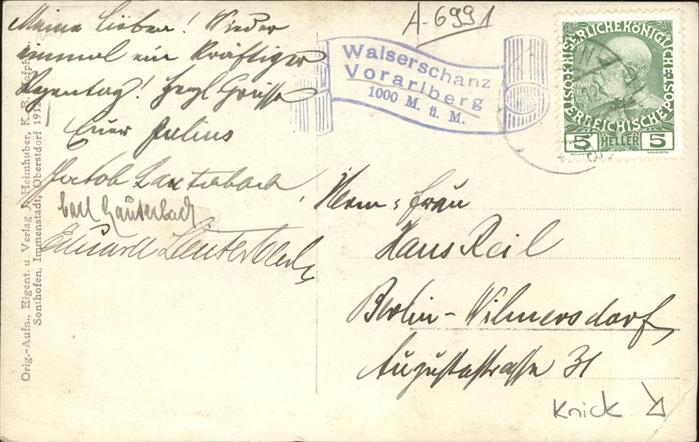 Meine Lieben! Wieder
einmal ein kräftiger
Regentag! Herzl Grüsse
Euer Julius
Jakob Lauterbach
Carl Lauterbach
Eduard Lauterbach
Orig.-Aufn., Eigent. u. Verlag Heimhuber, K. B.
Sonthofen, Immenstadt, Oberstdorf
A-6991
Walserschanz
Vorarlberg
1000 M. ü. M.
KAISERLICHE KÖNIGLICHE ÖSTERREICHISCHE POST
5 HELLER 5
Herrn u. Frau
Hans Reil
Berlin-Wilmersdorf,
Augustastrasse 31
Knick